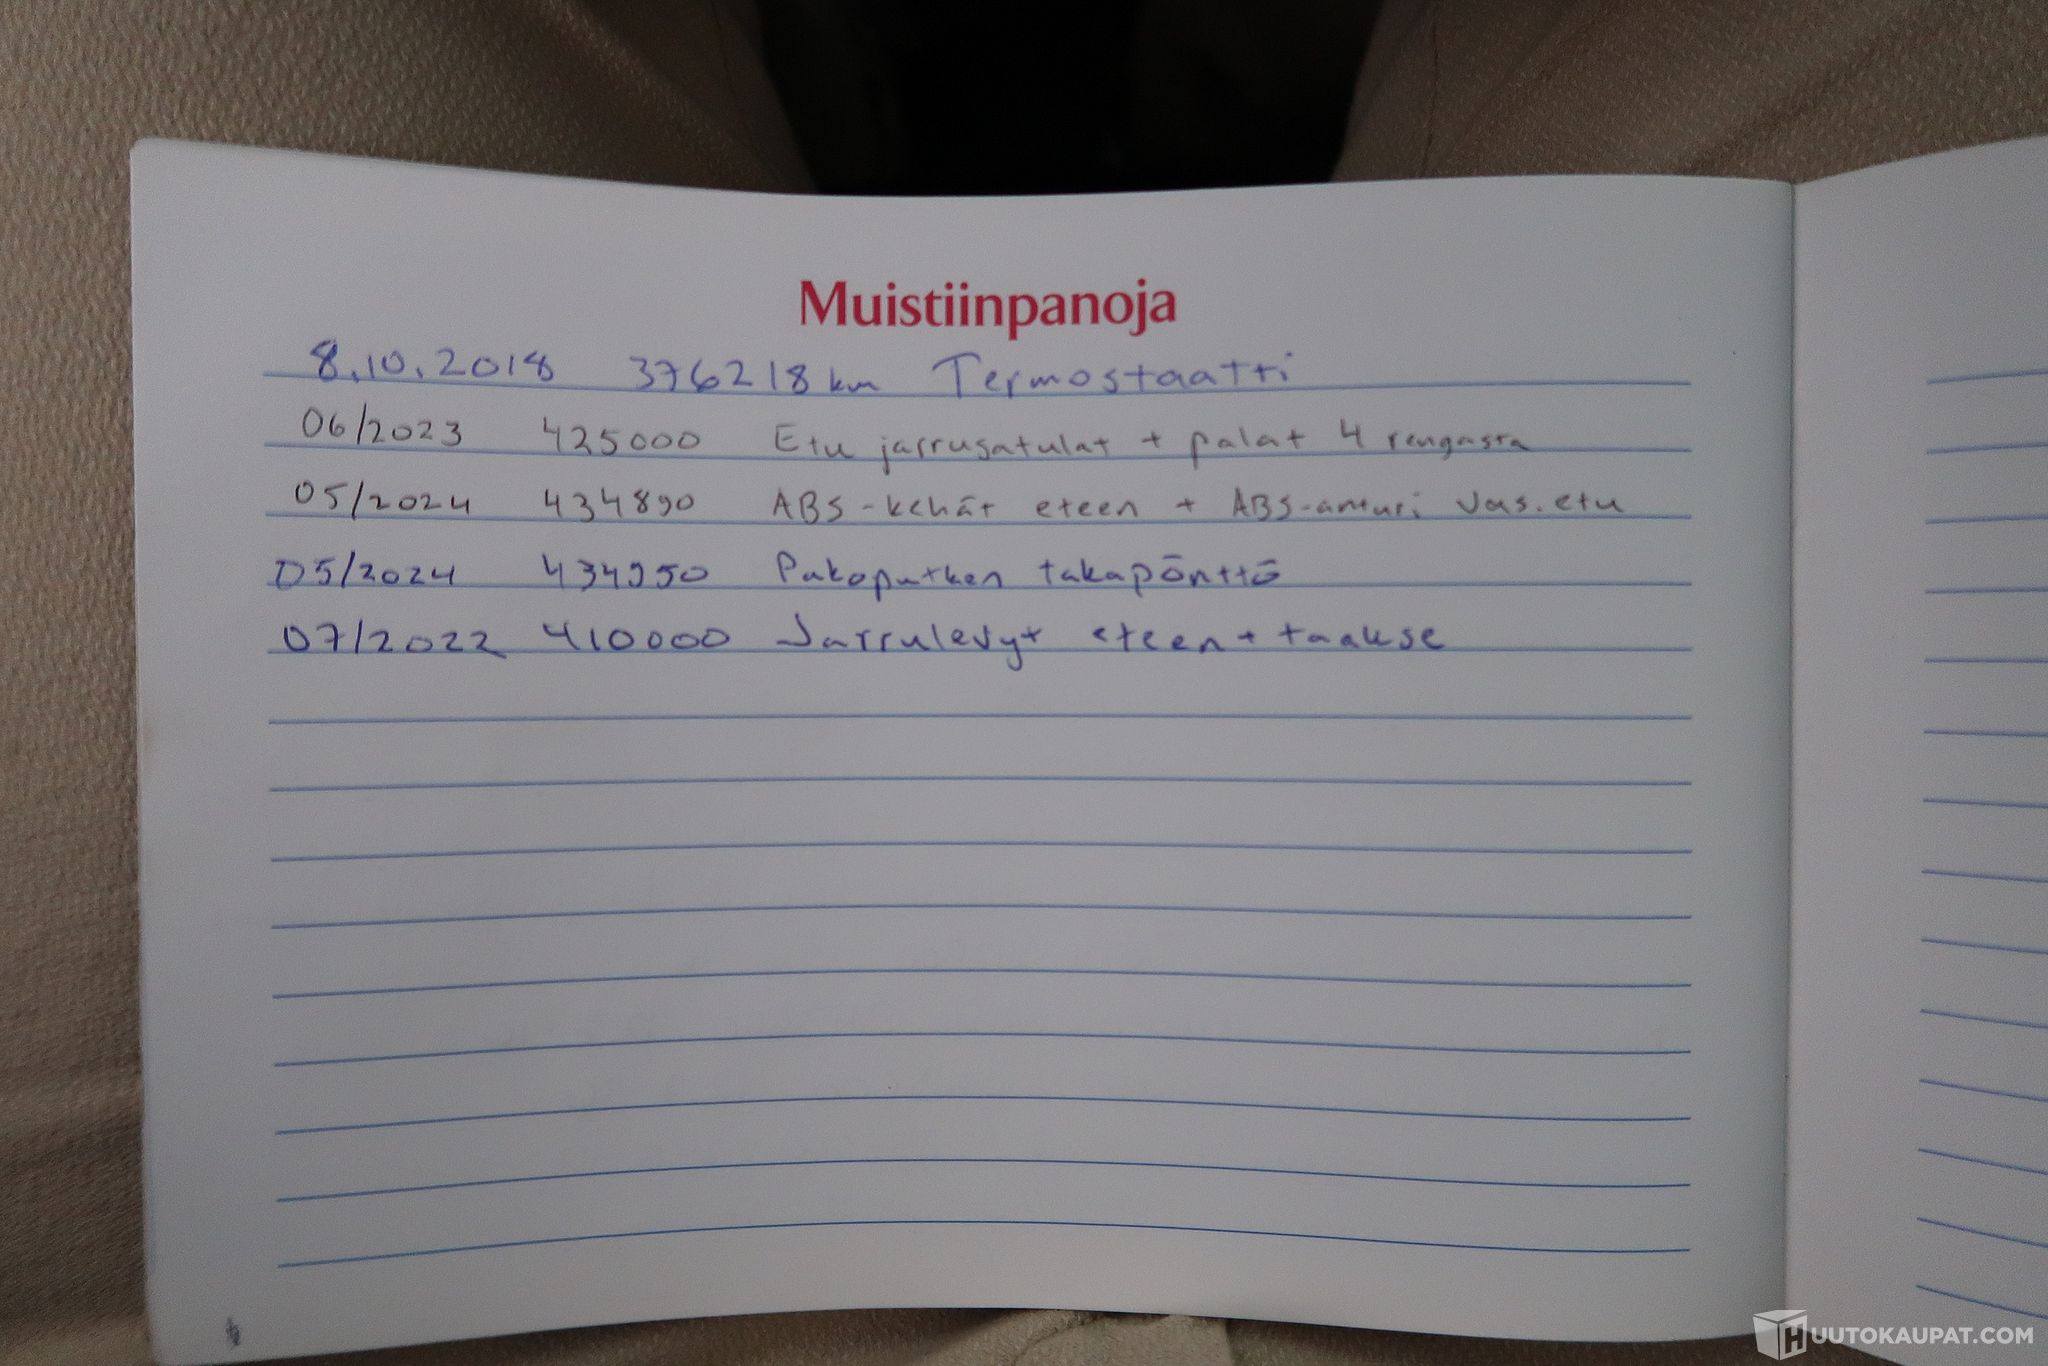 Muistiinpanoja
8.10.2018 376218 km Termostaatti
06/2023 425000 Etu jarrusatulat + palat 4 rengasta
05/2024 434890 ABS-kehät eteen + ABS-anturi vas. etu
05/2024 434950 Pakoputken takapönttö
07/2022 410000 Jarrulevyt eteen + taakse
HUUTOKAUPAT.COM